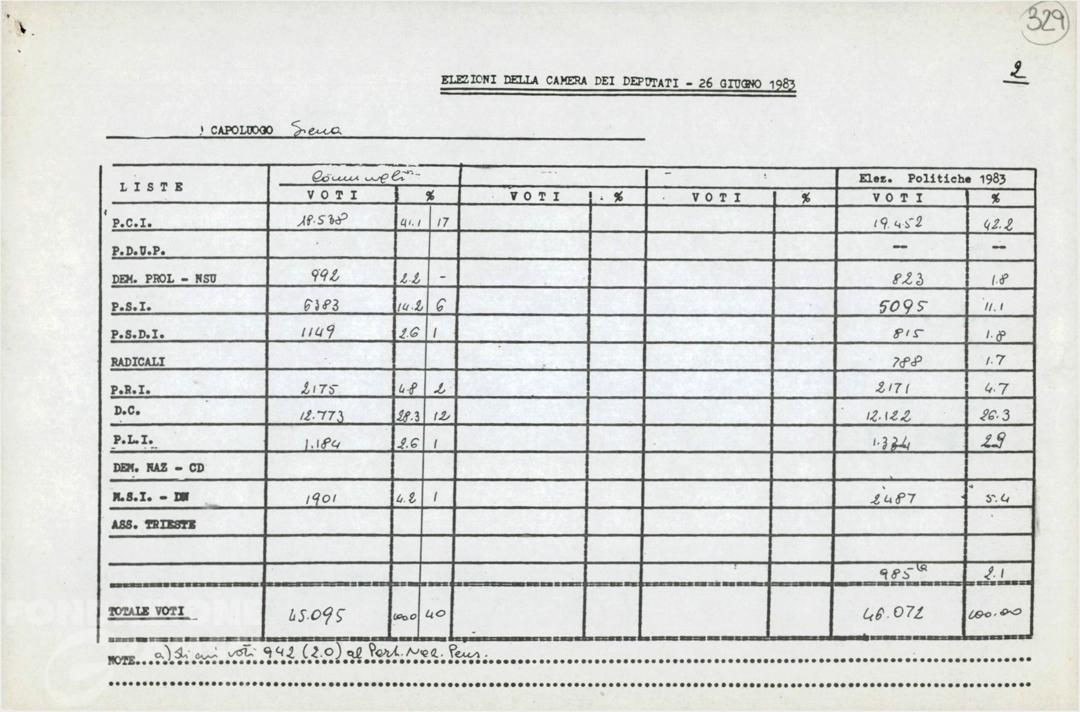 329
2
ELEZIONI DELLA CAMERA DEI DEPUTATI - 26 GIUGNO 1983
CAPOLUOGO Siena
LISTE Comunali Elez. Politiche 1983
VOTI % VOTI % VOTI % VOTI %
P.C.I. 18.538 41.1 17 19.452 42.2
P.D.U.P. -- --
DEM. PROL - NSU 992 2.2 - 823 1.8
P.S.I. 6383 14.2 6 5095 11.1
P.S.D.I. 1149 2.6 1 815 1.8
RADICALI 788 1.7
P.R.I. 2175 4.8 2 2171 4.7
D.C. 12.773 28.3 12 12.122 26.3
P.L.I. 1.184 2.6 1 1.334 2.9
DEM. NAZ - CD
M.S.I. - DN 1901 4.2 1 2487 5.4
ASS. TRIESTE
985 (a 2.1
TOTALE VOTI 45.095 100.0 40 46.072 100.00
NOTE a) di cui voti 942 (2.0) al Part. Naz. Pens.
FONDAZIONE